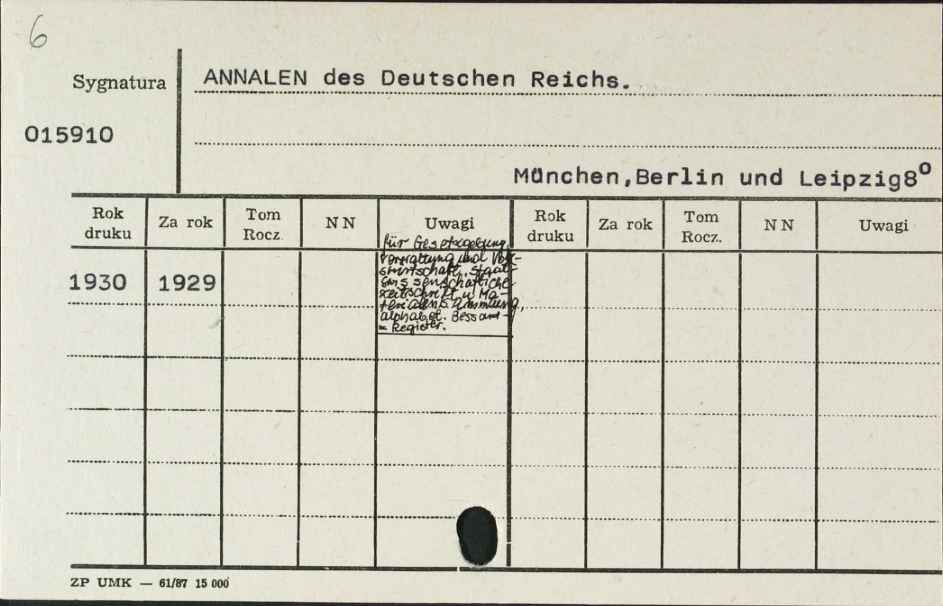 6
Sygnatura
ANNALEN des Deutschen Reichs.
015910
München,Berlin und Leipzig8°
Rok druku Za rok Tom Rocz. N N Uwagi Rok druku Za rok Tom Rocz. N N Uwagi
für Gesetzgebung,
Verwaltung und Volk-
swirtschaft. Staat-
1930 1929
swissenschaftliche
Zeitschrift u Ma-
terialiensammlung,
alphabet.
Register.
ZP UMK — 61/87 15 000